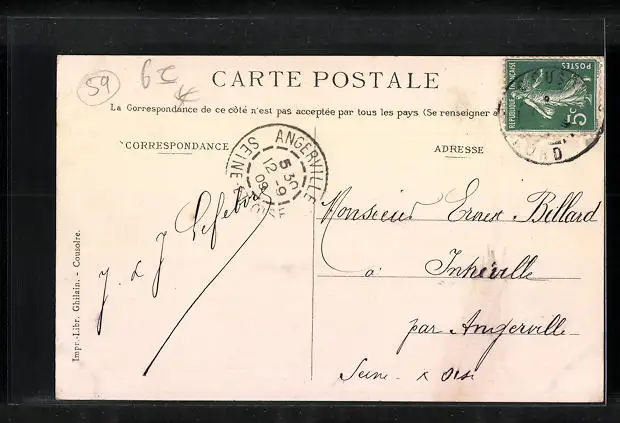 59
CARTE POSTALE
La Correspondance de ce côté n'est pas acceptée par tous les pays (Se renseigner à
CORRESPONDANCE
ADRESSE
RÉPUBLIQUE FRANÇAISE
POSTES
5c
ANGERVILLE
SEINE
5 30
12 - 9
09
NORD
J. & J Lefebvre
Monsieur Ernest Billard
à Intréville
par Angerville
Seine - & Oise
Impr.-Libr. Ghilain. - Cousolre.